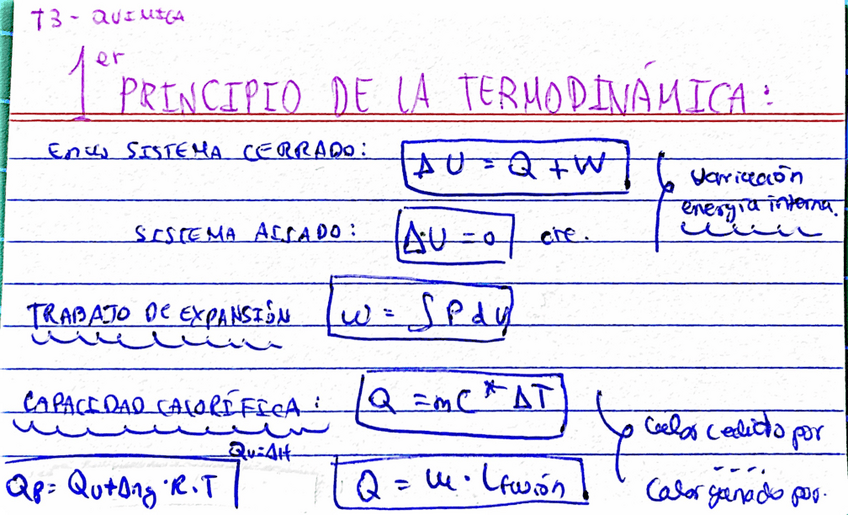 T3 - QUIMICA
1er PRINCIPIO DE LA TERMODINÁMICA:
SISTEMA CERRADO: ΔU = Q + W
Variación
energía interna.
SISTEMA AISLADO: ΔU = 0 cte.
TRABAJO DE EXPANSIÓN W = ∫ P dV
CAPACIDAD CALORÍFICA: Q = mC * ΔT
Calor cedido por
Calor ganado por.
Qv=ΔH
Qp = Qv+Δng·R·T
Q = m · Lfusión